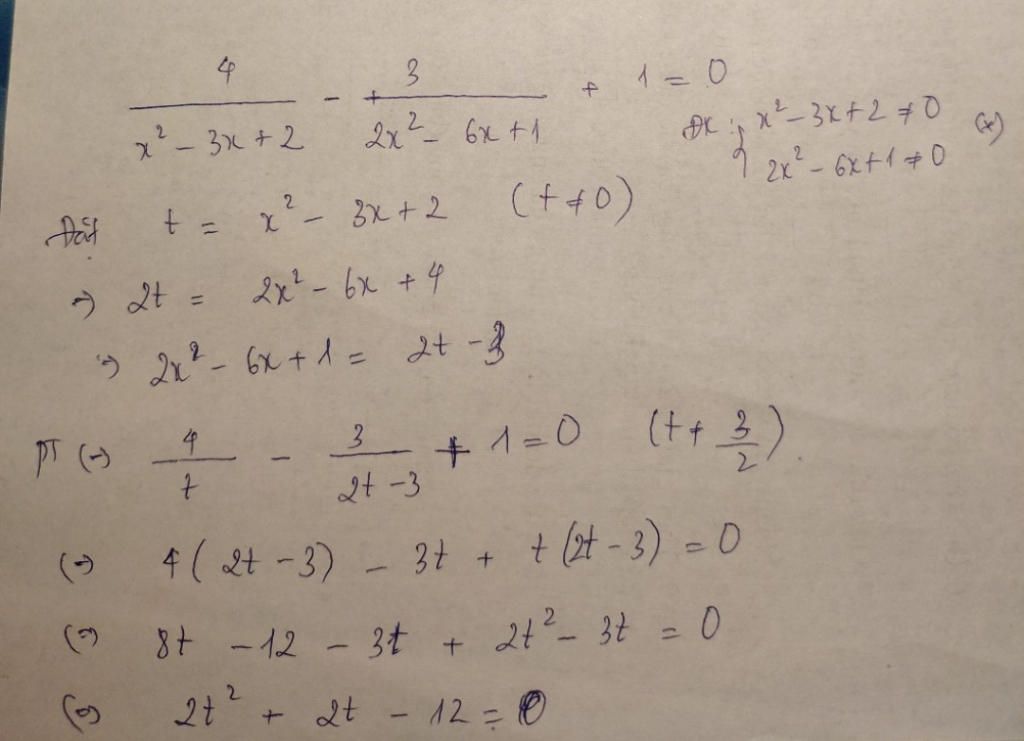 4/(x² - 3x + 2) - 3/(2x² - 6x + 1) + 1 = 0
ĐK : { x² - 3x + 2 ≠ 0 (*)
2x² - 6x + 1 ≠ 0
Đặt t = x² - 3x + 2 (t ≠ 0)
=> 2t = 2x² - 6x + 4
=> 2x² - 6x + 1 = 2t - 3
PT (=) 4/t - 3/(2t - 3) + 1 = 0 (t ≠ 3/2).
(=) 4(2t - 3) - 3t + t(2t - 3) = 0
(=) 8t - 12 - 3t + 2t² - 3t = 0
(=) 2t² + 2t - 12 = 0